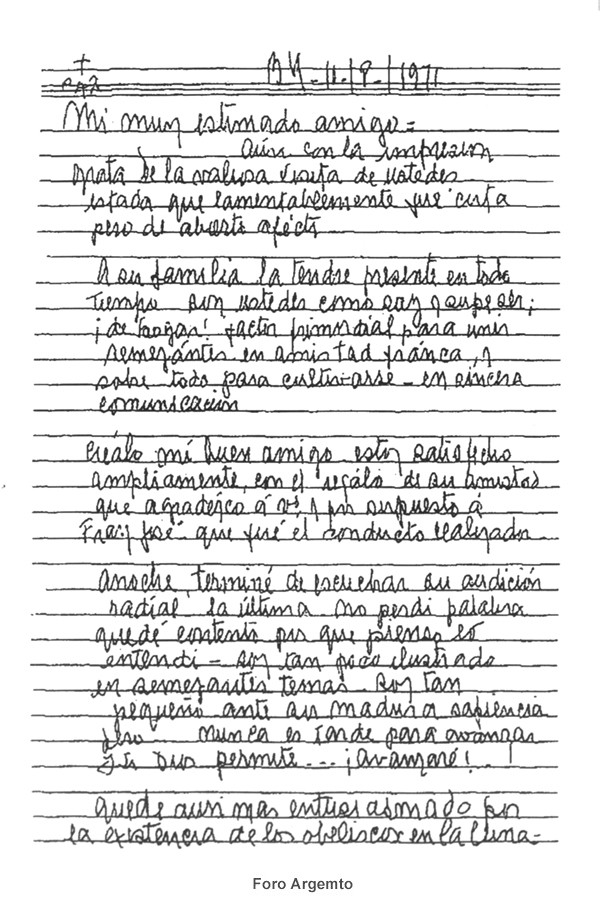 +
PAZ
11-9-1971
Mi muy estimado amigo =
Aún con la impresión
grata de la valiosa visita de ustedes
estada que lamentablemente fué corta
pero de abierto afécto
A su familia la tendre presente en todo
tiempo son ustedes como soy y supe ser;
¡de hogar! factor primordial para unir
semejántes en amistad fránca, y
sobre todo para cultivarse - en sincera
comunicación
Créalo mi buen amigo estoy satisfecho
ampliamente, con el regálo de su amistad
que agradezco á Vd. y por supuesto á
Fray José que fué el conducto realizador
Anoche, terminé de escuchar su audición
radial la última no perdi palabra
quedé contento por que pienso lo
entendi = soy tan poco ilustrado
en semejantes temas. Soy tan
pequeño ante su madura sapiencia
pero nunca es tarde para avanzar
Si Dios permite... ¡avanzaré!
quede aun mas entusiasmado por
la existencia de los obeliscos en la luna =
Foro Argemto